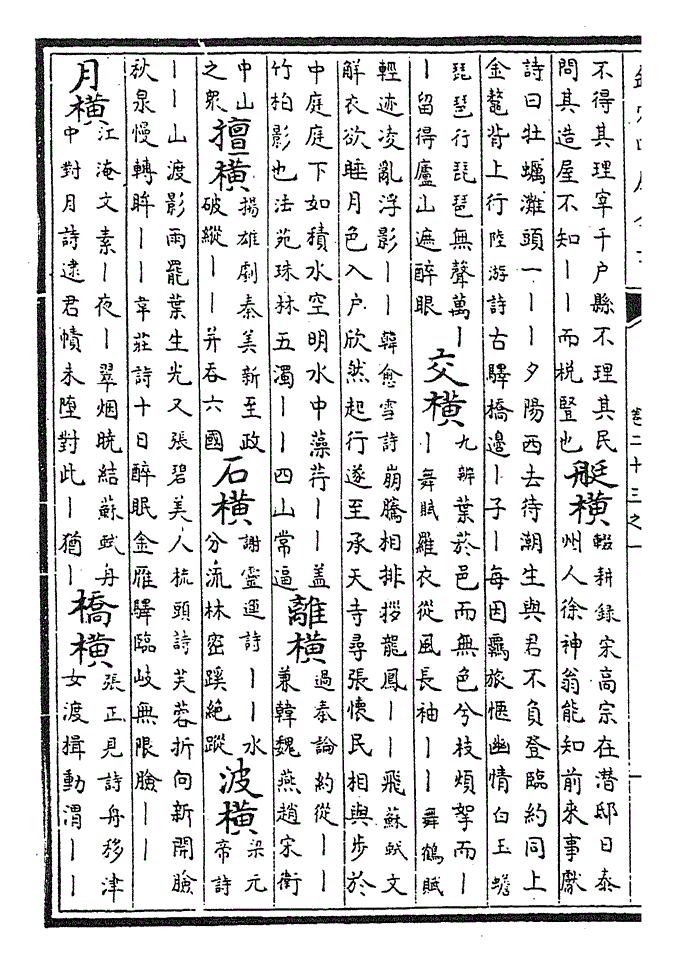 卷二十三之一
不得其理宰千户縣不理其民
問其造屋不知丨丨而梲豎也
艇橫
輟耕録宋高宗在潛邸日泰
州人徐神翁能知前來事獻
詩曰牡蠣灘頭一丨丨夕陽西去待潮生與君不負登臨約同上
金鰲背上行陸游詩古驛橋邊丨子丨每因羈旅愜幽情白玉蟾
琵琶行琵琶無聲萬丨
丨留得廬山遮醉眼
交橫
九辨葉菸邑而無色兮枝煩挐而丨
丨舞賦羅衣從風長袖丨丨舞鶴賦
輕迹凌亂浮影丨丨韓愈雪詩崩騰相排拶龍鳳丨丨飛蘇軾文
解衣欲睡月色入户欣然起行遂至承天寺尋張懷民相與步於
中庭庭下如積水空明水中藻荇丨丨蓋
竹柏影也法苑珠林五濁丨丨四山常逼
離橫
過秦論約從丨丨
兼韓魏燕趙宋衛
中山
之衆
擅橫
揚雄劇秦美新至政
破縱丨丨并吞六國
石橫
謝靈運詩丨丨水
分流林密蹊絶蹤
波橫
梁元
帝詩
丨丨山渡影雨罷葉生光又張碧美人梳頭詩芙蓉折向新開臉
秋泉慢轉眸丨丨韋莊詩十日醉眠金雁驛臨岐無限臉丨丨
月橫
江淹文素丨夜丨翠烟晓結蘇軾舟
中對月詩逮君幘未墮對此丨猶丨
橋橫
張正見詩舟移津
女渡揖動渭丨丨